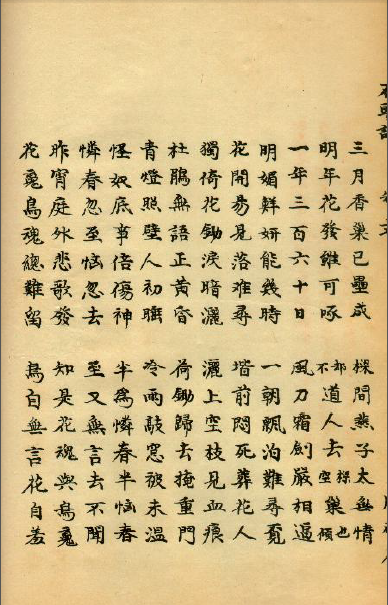 三月香巢已壘成 樑間燕子太無情
明年花發雖可啄 却不道人去樑空巢也傾
一年三百六十日 風刀霜劍嚴相逼
明媚鮮妍能幾時 一朝飄泊難尋覓
花開易見落难尋 堦前悶死葬花人
獨倚花鋤淚暗灑 灑上空枝見血痕
杜鵑無語正黃昏 荷鋤歸去掩重門
青燈照壁人初睡 冷雨敲窓被未溫
怪奴底事倍傷神 半為憐春半惱春
憐春忽至惱忽去 至又無言去不聞
昨宵庭外悲歌發 知是花魂與鳥魂
花魂鳥魂總難留 鳥自無言花自羞